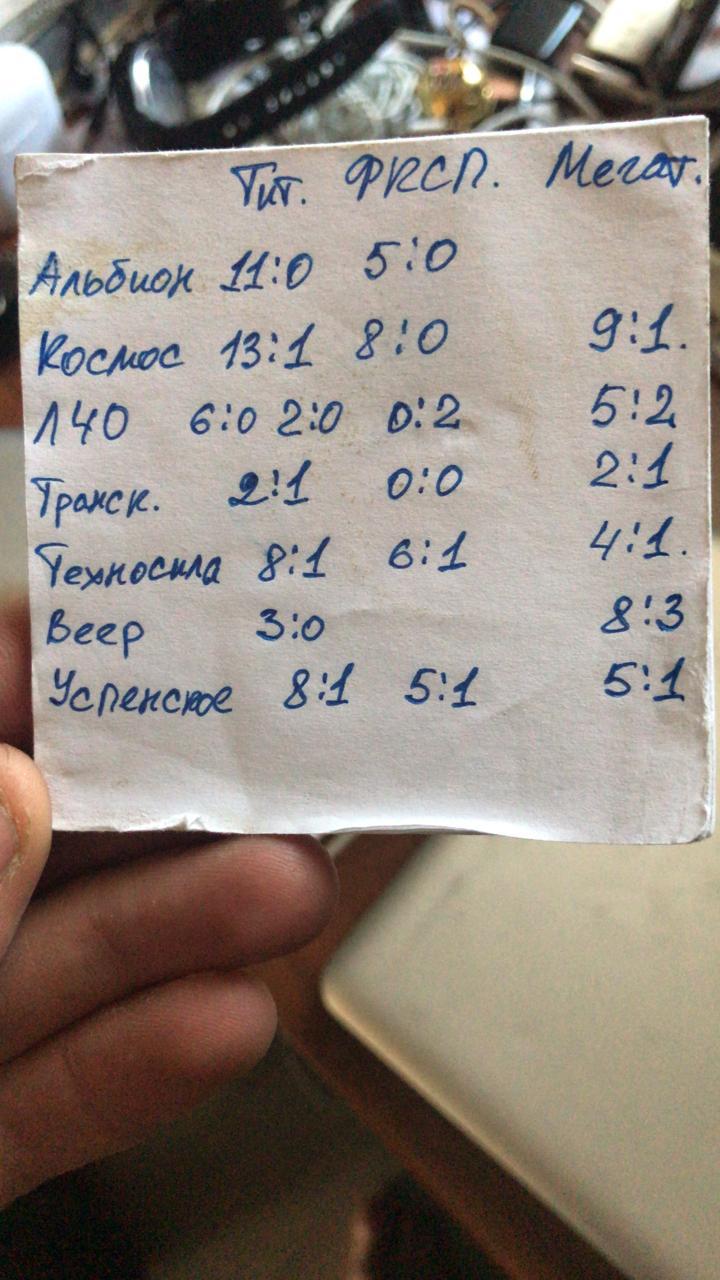 Тит. ФКСП. Мегат.
Альбион 11:0 5:0
Космос 13:1 8:0 9:1.
ЛЧО 6:0 2:0 0:2 5:2
Транск. 2:1 0:0 2:1
Техносила 8:1 6:1 4:1.
Веер 3:0 8:3
Успенское 8:1 5:1 5:1